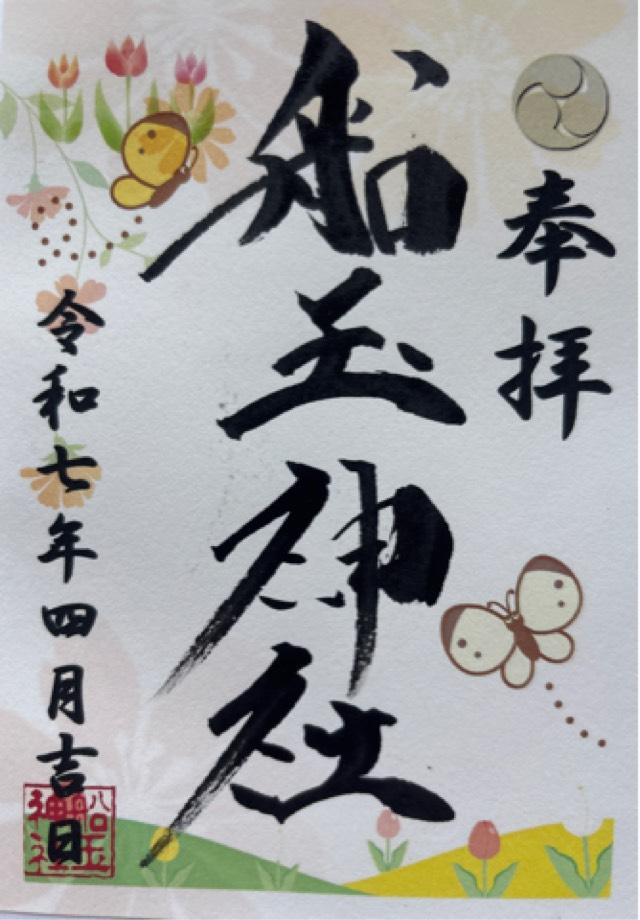 奉拝
船玉神社
令和七年四月吉日
船玉
神社